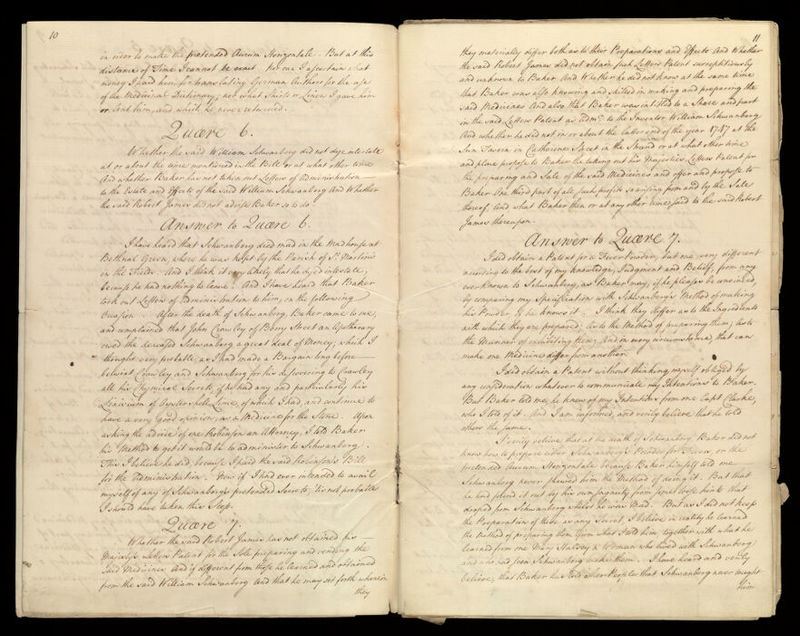 10
in order to make the pretended Aurum Horizontale. But at this
distance of Time I cannot be exact. Nor can I ascertain what
money I paid him for translating German Authors for the use
of the Medicinal Dictionary, nor what Shirts or Linen I gave him
or lent him, and which he never returned.
Quære 6.
Whether the said William Schwanberg did not dye intestate
at or about the time mentioned in the Bill or at what other time
And whether Baker has not taken out Letters of Administration
to the Estate and Effects of the said William Schwanberg And Whether
the said Robert James did not advise Baker so to do.
Answer to Quære 6.
I have heard that Schwanberg died mad in the Madhouse at
Bethnal Green, where he was kept by the Parish of St. Martin's
in the Fields. And I think it very likely that he dyed intestate,
because he had nothing to leave. And I have heard that Baker
took out Letters of Administration to him, on the following
Occasion. After the death of Schwanberg, Baker came to me,
and complained that John Crawley of Berry Street an Apothecary
owed the deceased Schwanberg a great deal of Money; which I
thought very probable as I had made a Bargain long before
betwixt Crawley and Schwanberg for his discovering to Crawley
all his Chymical Secrets, if he had any and particularly his
Lixivium of Oyster-shell Lime, of which I had, and continue to
have a very good opinion, as a Medicine for the Stone. Upon
asking the advice of one Robinson an Attorney, I told Baker
his Method to get it would be to administer to Schwanberg.
This I believe he did, because I paid the said Robinson's Bill
for the Administration. Now if I had ever intended to avail
myself of any of Schwanberg's pretended Secrets, 'tis not probable
I should have taken this Step.
Quære 7.
Whether the said Robert James has not obtained his
Majesty's Letters Patent for the Sole preparing and vending the
said Medicines And if different from those he learned and obtained
from the said William Schwanberg And that he may set forth wherein
they
11
they materially differ both as to their Preparations and Effects And Whether
the said Robert James did not obtain such Letters Patent surreptitiously
and unknown to Baker And Whether he did not know at the same time
that Baker was also knowing and skilled in making and preparing the
said Medicines And also that Baker was intitled to a Share and part
in the said Letters Patent as Admr. to the Inventor William Schwanberg
And whether he did not in or about the latter end of the year 1747 at the
Sun Tavern in Catherine Street in the Strand or at what other time
and place propose to Baker the taking out his Majesties Letters Patent for
the preparing and Sale of the said Medicines and offer and propose to
Baker One third part of all such profits as arising from and by the Sale
thereof And what Baker then or at any other time said to the said Robert
James thereupon.
Answer to Quære 7.
I did obtain a Patent for a Fever Powder, but one very different
according to the best of my knowledge, Judgment and Belief, from any
ever known to Schwanberg, as Baker may, if he pleases be convinced,
by comparing my Specification with Schwanberg's Method of making
his Powder if he knows it. I think they differ as to the Ingredients
with which they are prepared; As to the Method of preparing them; As to
the Manner of exhibiting them; And in every circumstance, that can
make one Medicine differ from another.
I did obtain a Patent without thinking myself obliged by
any consideration whatsoever to communicate my Intentions to Baker.
But Baker told me, he knew of my Intention from one Capt. Clarke,
who I told of it. And I am informed, and verily believe that he told
others the same.
I verily believe that at the death of Schwanberg Baker did not
know how to prepare either Schwanberg's Powder for Fevers, or the
pretended Aurum Horizontale because Baker himself told me
Schwanberg never shewed him the Method of doing it. But that
he had found it out by his own Sagacity from some loose hints that
dropped from Schwanberg whilst he was Mad. But as I did not keep
the Preparation of these as any Secret I believe in reality he learned
the Method of preparing them from what I told him, together with what he
learned from one Mary Stalvey a Woman who lived with Schwanberg
and who had seen Schwanberg make them. I have heard and verily
believe, that Baker has told other People that Schwanberg never taught
him